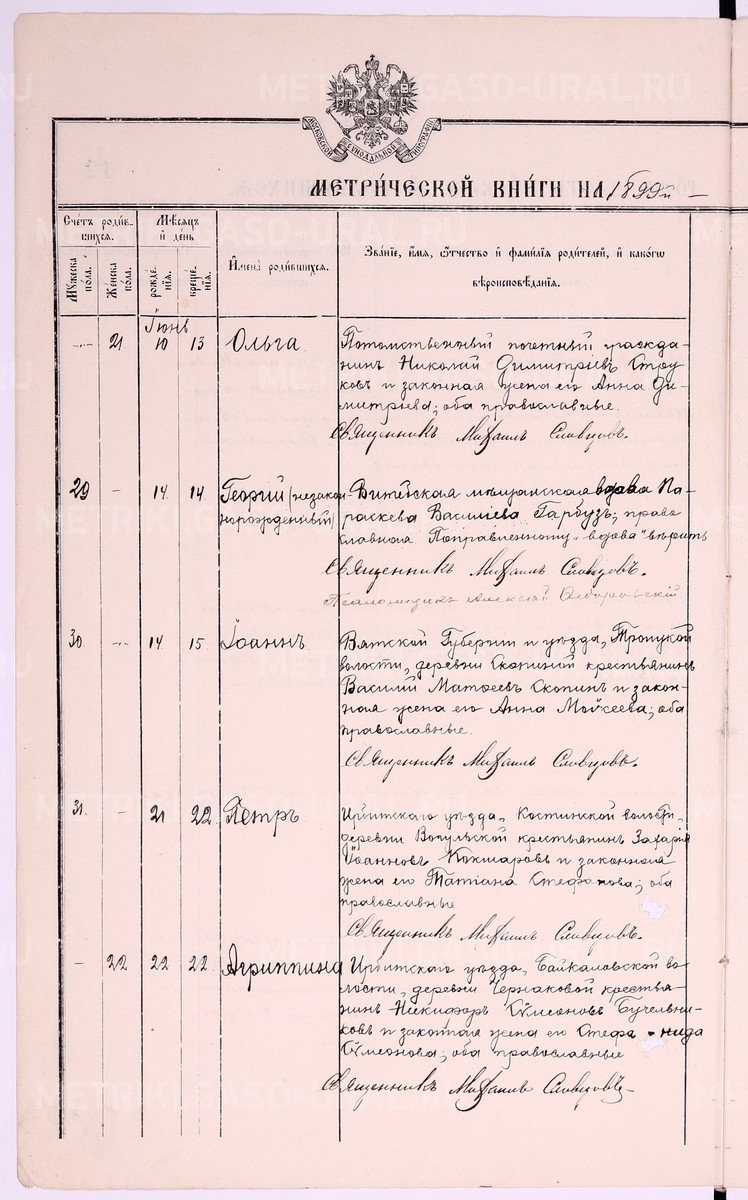 МОСКОВСКОЙ СѴНОДАЛЬНОЙ ТИПОГРАФІИ
МЕТРИ́ЧЕСКОЙ КНИ́ГИ НА 1899й
Счетъ роди́вшихся.
Мѣсяцъ и день
Имена̀ роди́вшихся.
Зва́нїе, и́мѧ, ѻ҆́тчество и фами́лїѧ роди́телей, и како́гѡ вѣроисповѣ́данїѧ.
Мꙋжеска по́ла.
Же́нска по́ла.
рожде́нїѧ.
креще́нїѧ.
Іюнь
21 10 13 Ольга
Потомственный почетный гражда-
нинъ Николай Димитріевъ Стру
ковъ и законная жена его Анна Ди-
митріева; оба православные.
Священникъ Михаилъ Словцовъ.
29 - 14 14 Георгій (незакон-
норожденный)
Витебская мѣщанская вдова Па-
раскева Василіева Гарбузъ; право
славная Поправленному "вдова" вѣрить
Священникъ Михаилъ Словцовъ.
Псаломщикъ Алексѣй
30 - 14 15 Іоаннъ.
Вятской Губерніи и уѣзда, Троицкой
волости, деревни Скопиной крестьянинъ
Василій Матѳеевъ Скопинъ и закон-
ная жена его Анна Моѵсеева; оба
православные.
Священникъ Михаилъ Словцовъ.
31. - 21 22 Петръ
Ирбитскаго уѣзда, Костинской волости,
деревни Вогульской крестьянинъ Захарія
Іоанновъ Кокшаровъ и законная
жена его Татіана Стефанова; оба
православные
Священникъ Михаилъ Словцовъ.
- 22 22 22 Агриппина
Ирбитскаго уѣзда, Байкаловской во-
лости, деревни Чернаковой крестья-
нинъ Никифоръ Сѵмеоновъ Бучельни-
ковъ и законная жена его Стефанида
Сѵмеонова; оба православные
Священникъ Михаилъ Словцовъ